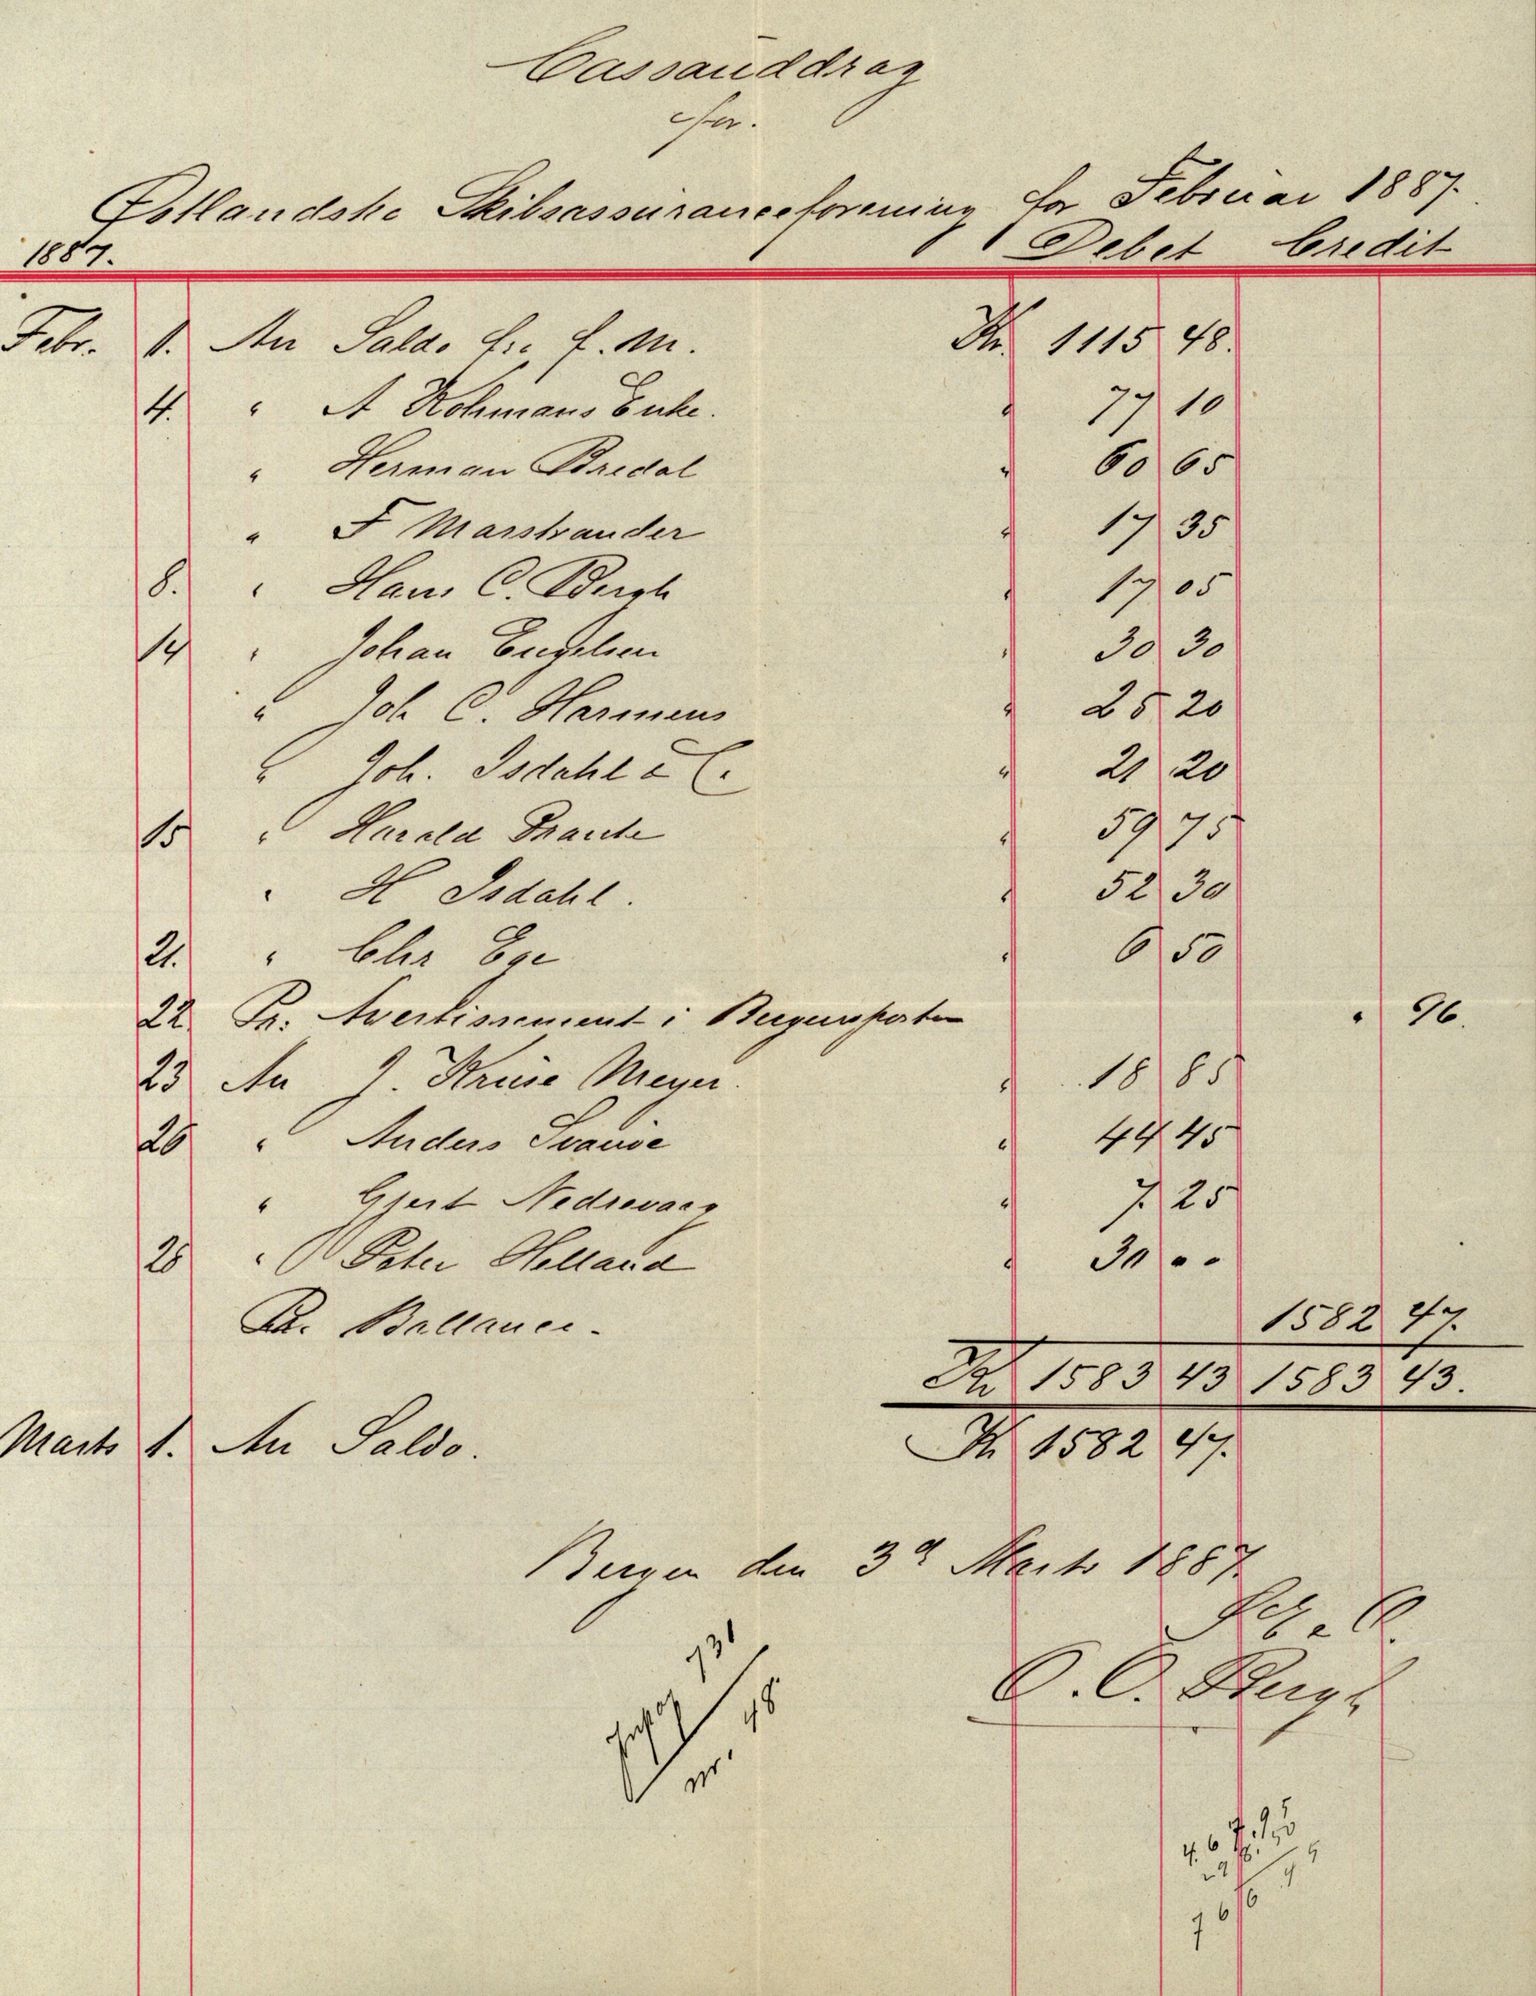 Cassauddrag
for.
Østlandske Skibsassuranceforening for Februar 1887.
1887.
Debet Credit
Febr. 1. An Saldo fra f. M. Kr. 1115 48.
4. " A Kohmans Enke. " 77 10
" Herman Bredal " 60 65
" F Marstrander " 17 35
8. " Hans C. Bergh " 17 05
14 " Johan Engelsen " 30 30
" Joh C. Harmens " 25 20
" Joh. Isdahl & C. " 21 20
15 " Harald Brante " 59 75
" H Isdahl. " 52 30
21. " Chr Ege " 6 50
22 Pr. Avertissement i Bergensposten " 96.
23 An J. Kruse Meyer. " 18 85
26 " Anders Svanøe " 44 45
" Gjert Nedrevaag " 7. 25
28 " Peter Helland " 30 " "
Pr. Ballance. 1582 47.
Kr 1583 43 1583 43.
Marts 1. An Saldo. Kr 1582 47.
Bergen den 3d Marts 1887.
C. C. Bergh
731
nr. 48